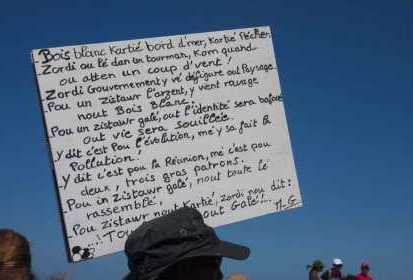 Bois blanc Kartié bord d'mer, Kartié Pêcher
Zordi ou lé dan un tourman, Kom quand
ou atten un coup d'vent !
Zordi Gouvernement y vé défigure out Paysage
Pou un zistawr l'argent, y vient ravage
nout Bois Blanc.
Pou un zistawr galé, out l'identité sera bafoué
out vie sera souillée.
Y dit c'est pou l'évolution, mé y sa fait la
Pollution !
Y dit c'est pou la Réunion, mé c'est pou
deux, trois gros patrons.
Pou in zistawr galé, nout toute lé
rassemblé,
Pou zistawr nout Kartié, zordi nou dit :
!! Tou out Galé !..